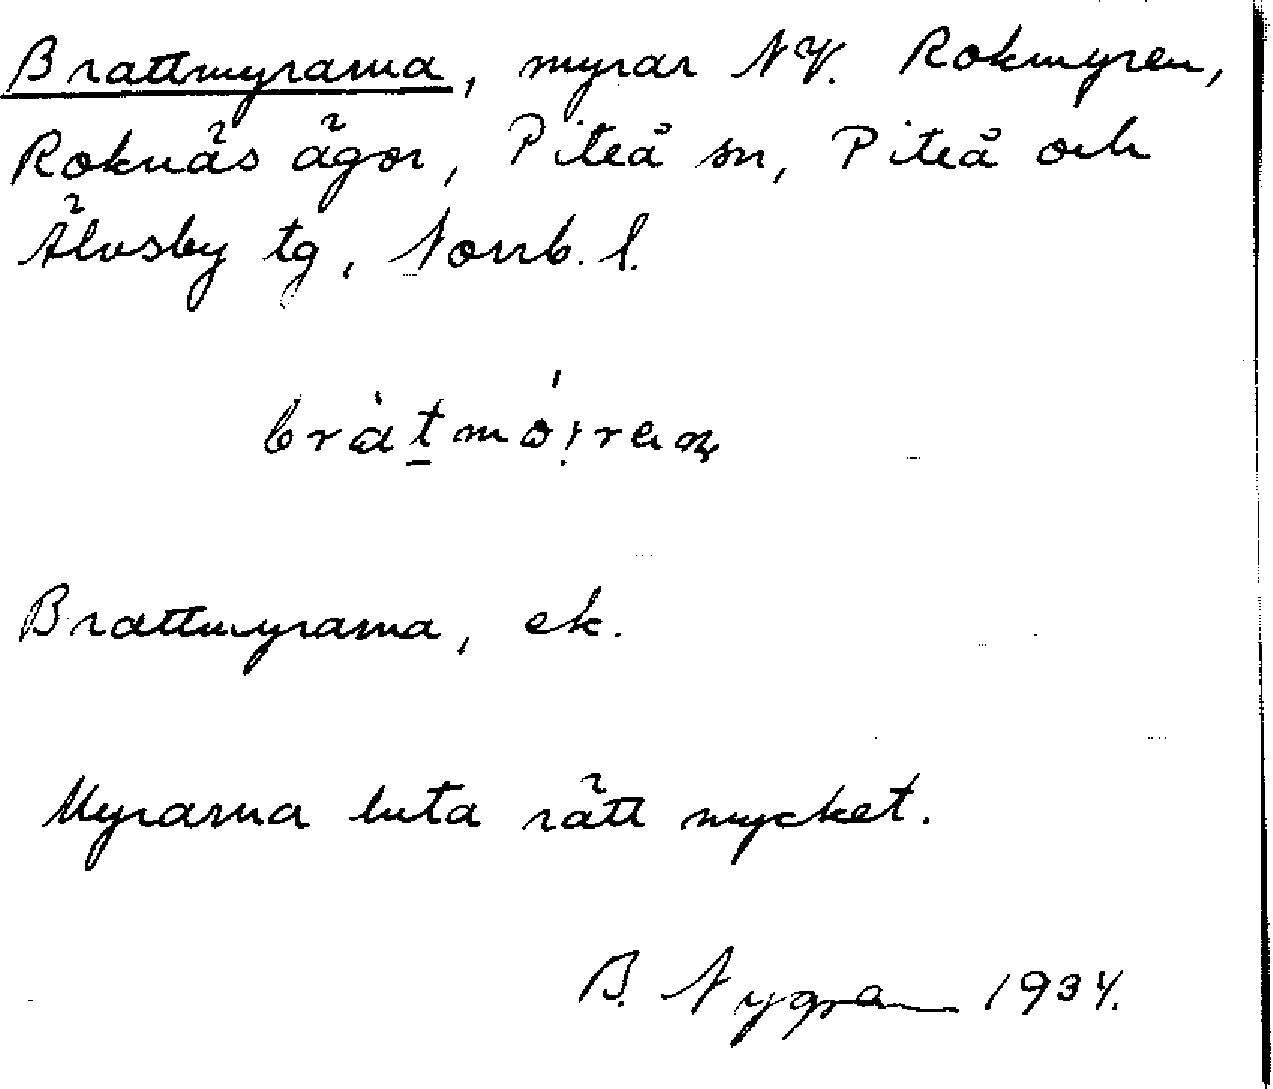 Brattmyrarna, myrar NV. Rokmyren,
Roknäs ägor, Piteå sn, Piteå och
Älvsby tg, Norrb. l.
Brattmyrarna, ek.
Myrarna luta rätt mycket.
B. Nygren 1934.